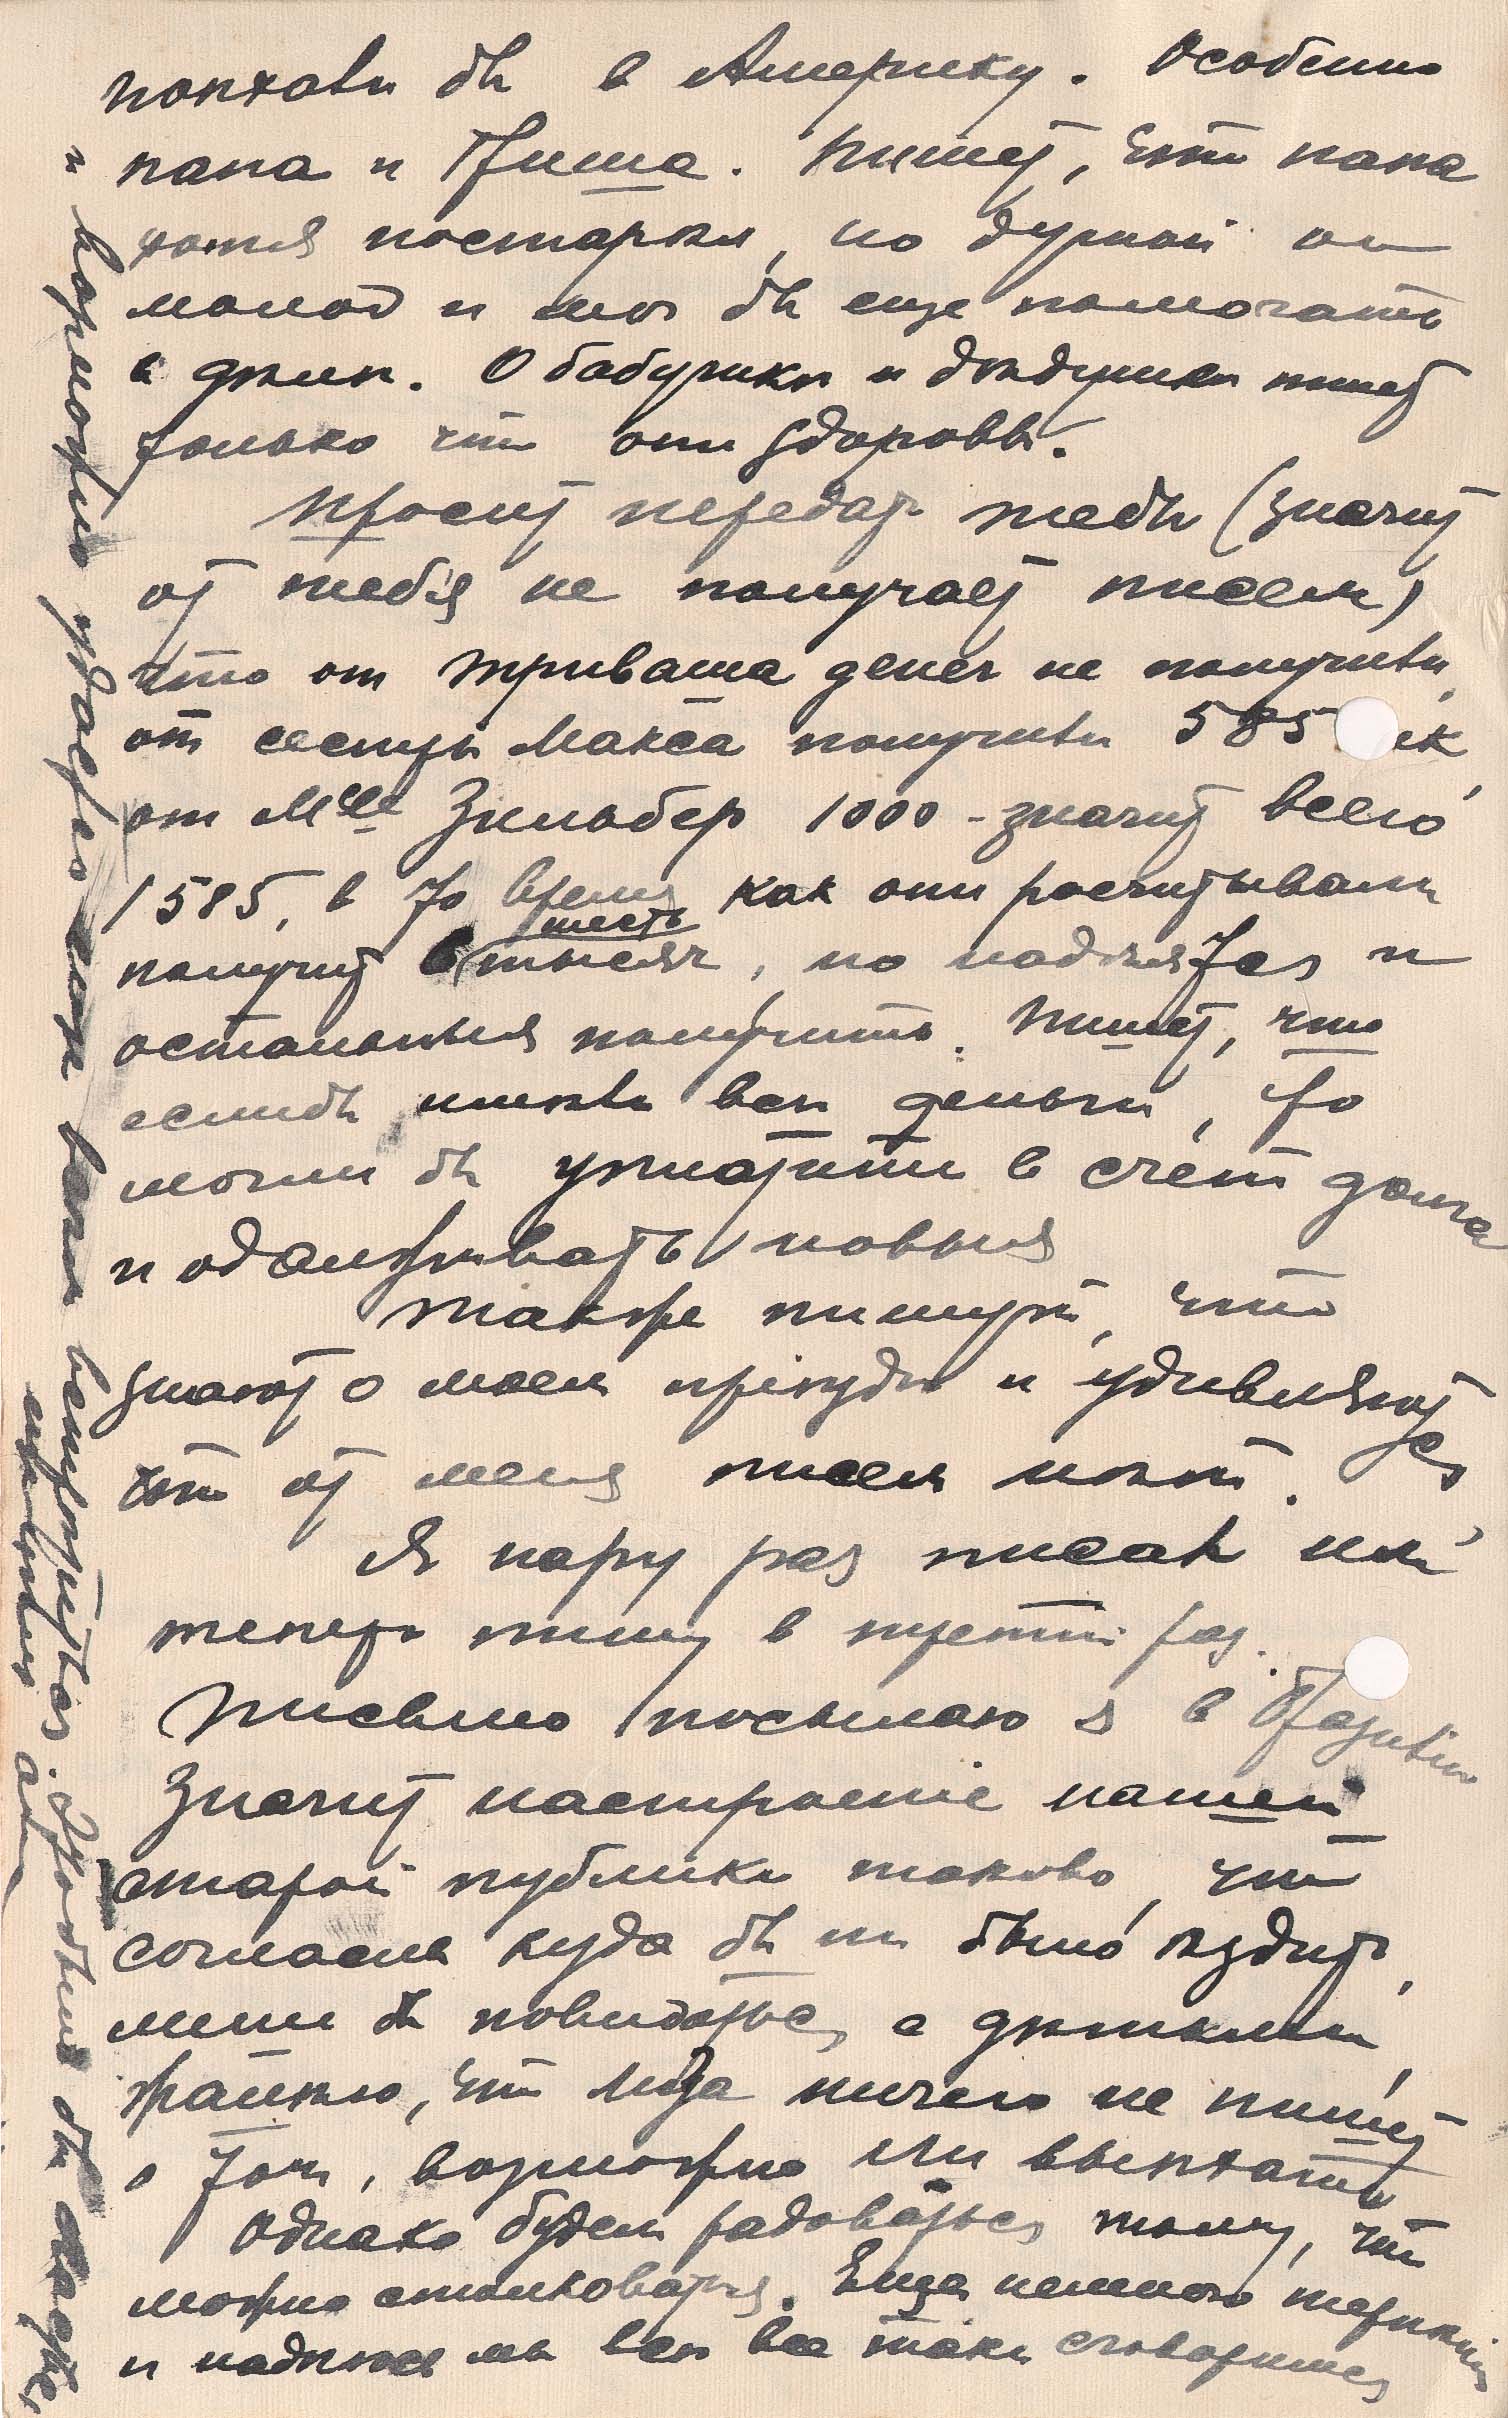 поѣхалъ бы в Америку. Особенно
папа и Гриша. Пишет, что папа
хотя постарѣл, но душой он
молод и мог бы еще помогать
в дѣлѣ. О бабушкѣ и дѣдушкѣ пишет
только что они здоровы.
Просит передать тебѣ (значит
от тебя не получает писем)
что от Триваша денег не получилъ
от сестры Макса получилъ 585
от Mlle Зильбер 1000 - значит всего
1585, в то время как они расчитывали
получить 6 (шесть тысяч, но надѣятся и
остальныя получить. Пишет, что
еслибы имѣлъ всѣ деньги, то
могли бы уплатить в счет долга
и одалживать новыя
Также пишут, что
знают о моем пріѣздѣ и удивляются
что от меня писем нѣт.
Я пару раз писалъ им
теперь пишу в третій раз.
Письмо посылаю я в
Значит настроеніе нашей
старой публики таково, что
согласна куда бы ни было ѣздить,
лишь бы повидаться с дѣтками
Жалѣю, что Лиза ничего не пишет
о том, возможно ли выѣхать
Однако будем радоваться тому, что
можно столковаться. Еще немного терпѣнія
и надѣюсь мы всѣ все таки сговоримся
и возможно удастся нам всѣм встрѣтиться.